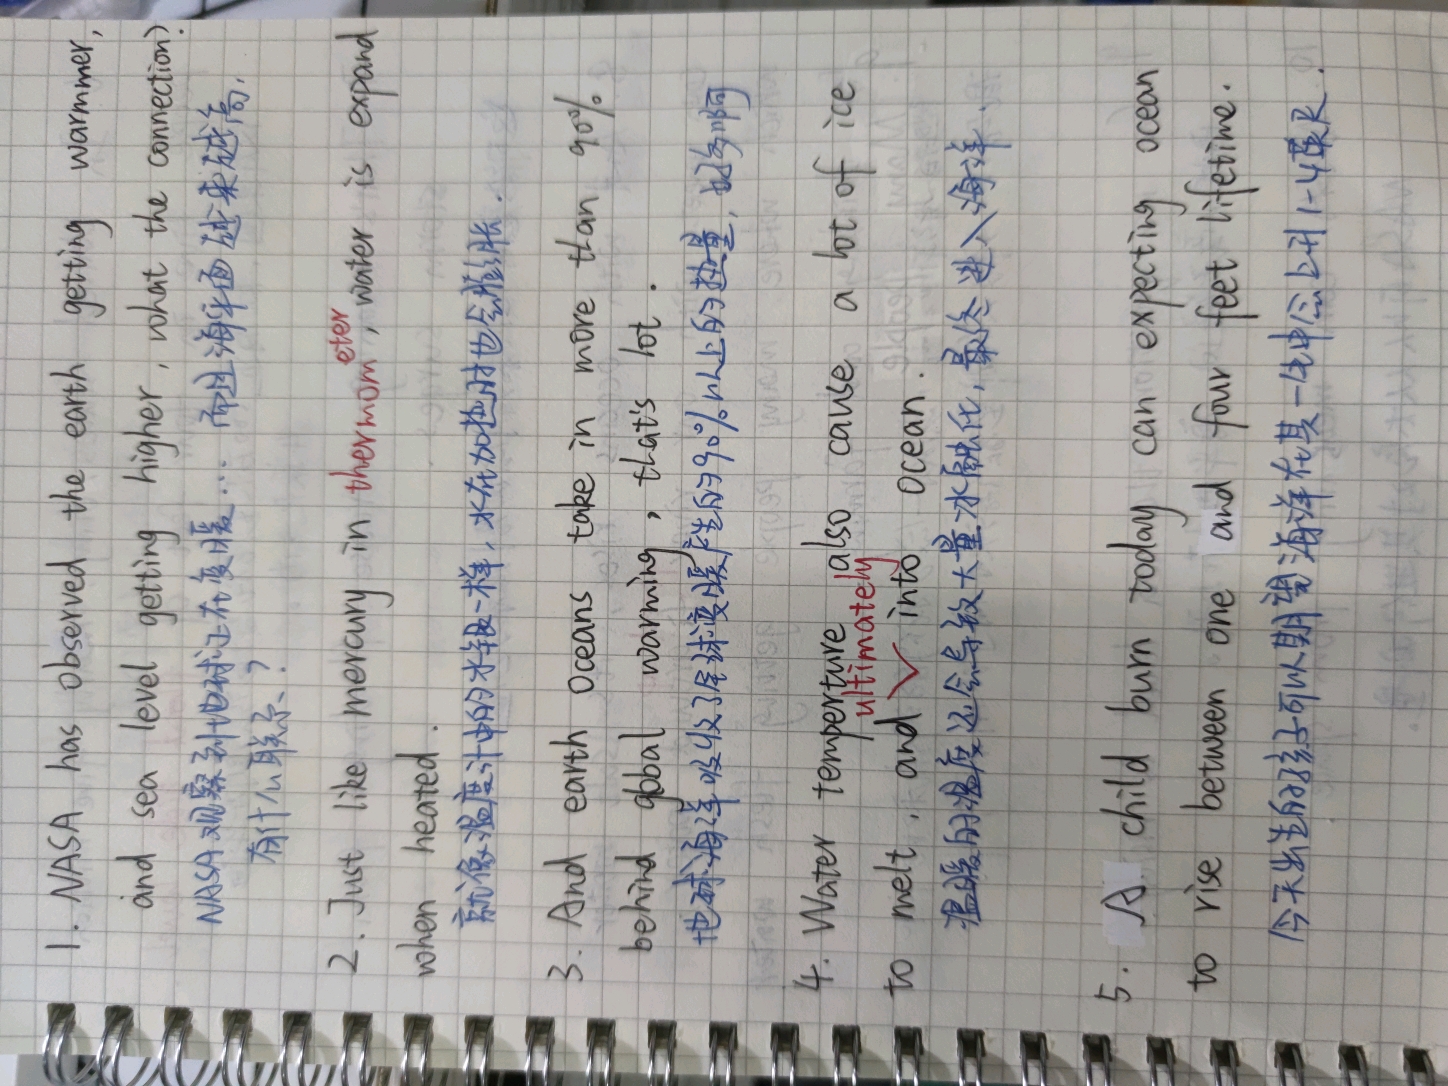 1. NASA has observed the earth getting warmner,
and sea level getting higher, what the connection?
NASA观察到地球正在变暖… 而且海平面越来越高,
有什么联系?
2. Just like mercury in thermometer, water is expand
when heated.
就像温度计中的水银一样, 水在加热时也会膨胀.
3. And earth oceans take in more than 90%
behind gobal warming, that's lot.
地球海洋吸收了全球变暖产生的90%以上的热量, 好多啊
4. Water temperture also cause a lot of ice
to melt, and ultimately into ocean.
温暖的温度还会导致大量冰融化, 最终进入海洋.
5. A child burn today can expecting ocean
to rise between one and four feet lifetime.
今天出生的孩子可以期望海洋在其一生中会上升1-4英尺.